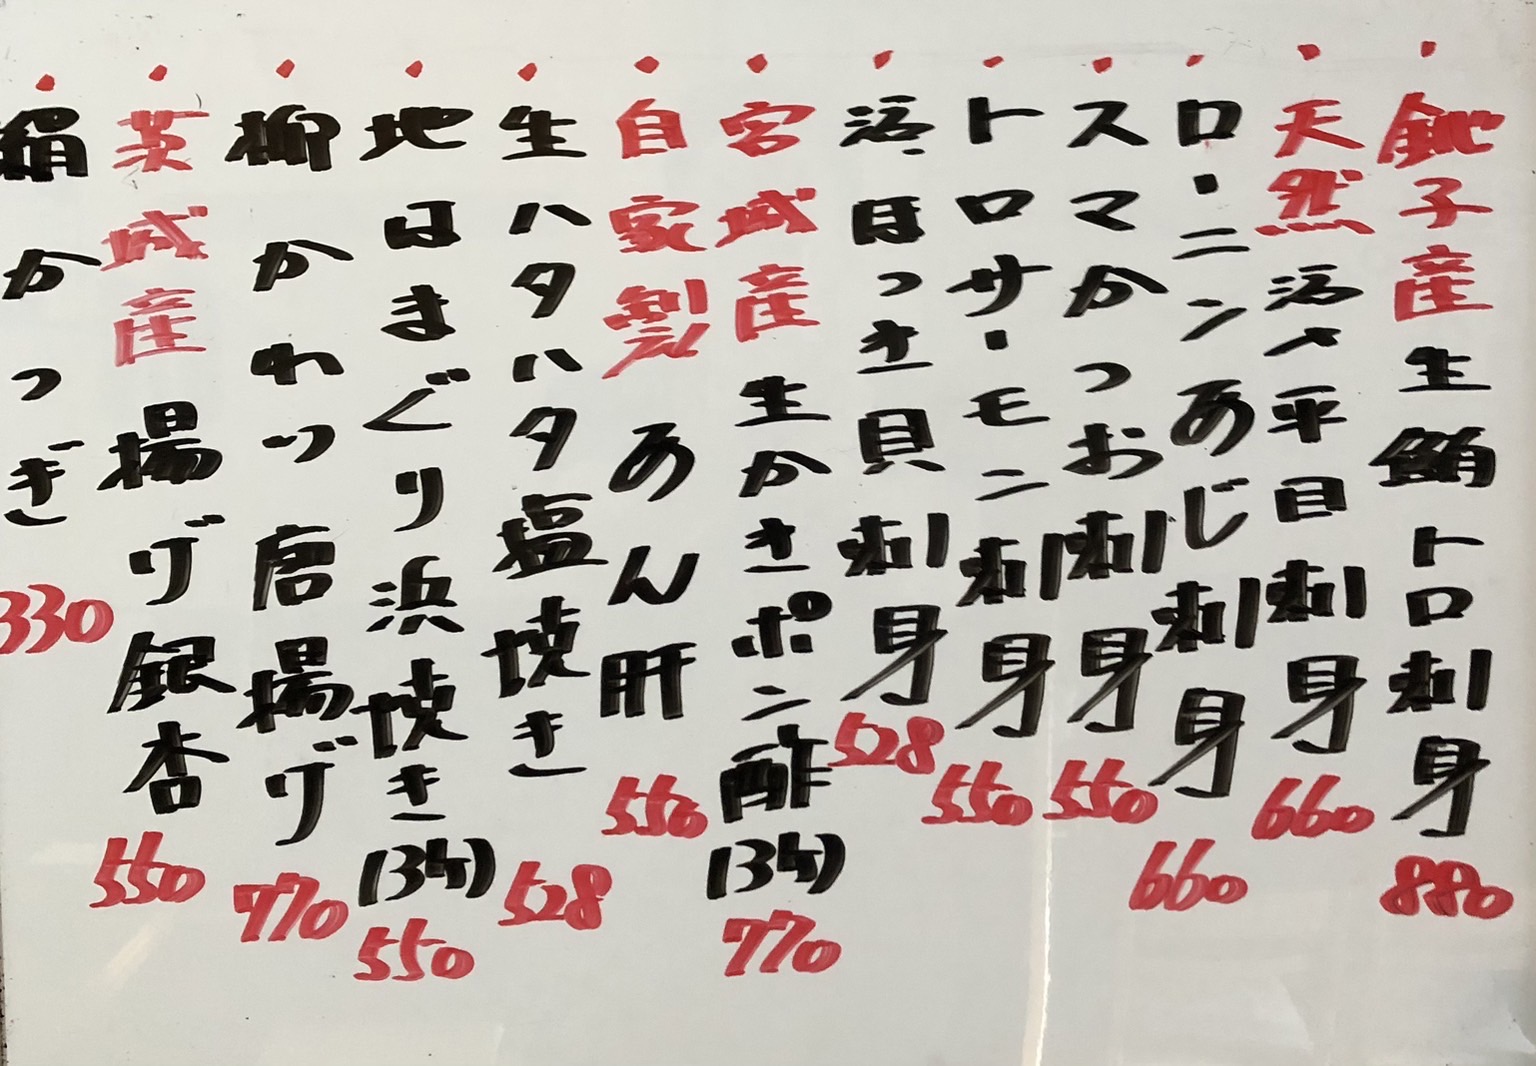 ・銚子産生鮪トロ刺身 880
・天然活〆平目刺身 660
・ローニンあじ刺身 660
・スマかつお刺身 550
・トロサーモン刺身 550
・活ほっき貝刺身 528
・宮城産生かきポン酢(3ケ) 770
・自家製あん肝 550
・生ハタハタ塩焼き 528
・地はまぐり浜焼き(3ケ) 550
・柳かれい唐揚げ 770
・茨城産揚げ銀杏 550
・絹かつぎ 330